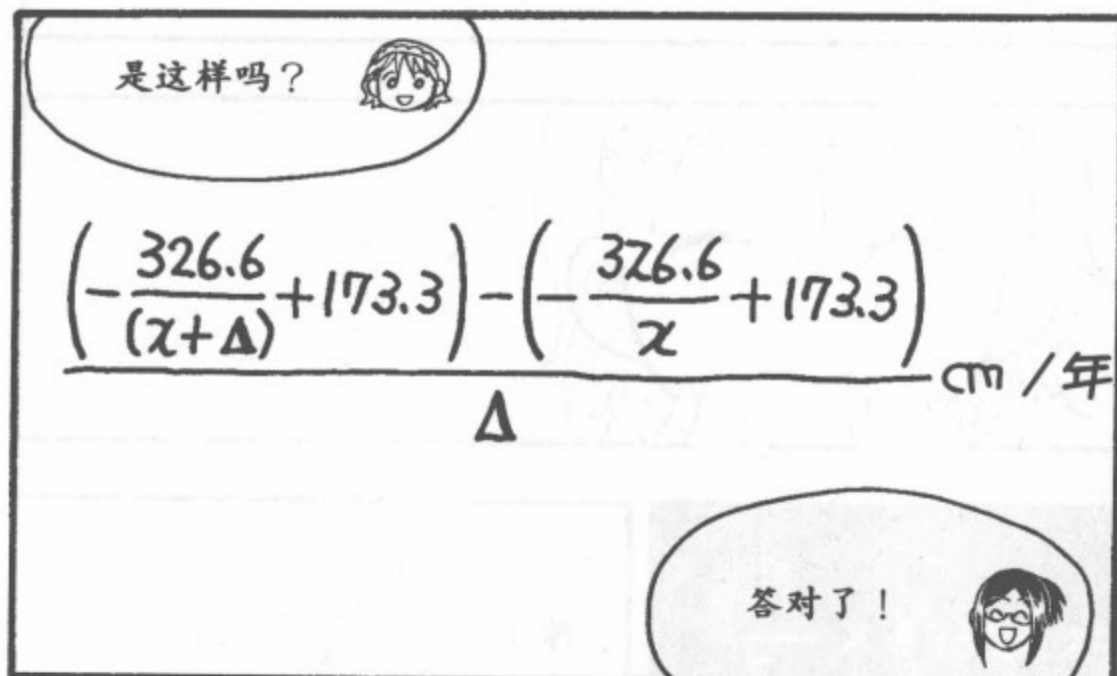 是这样吗？
(-326.6/(x+Δ)+173.3)-(-326.6/x+173.3)
Δ
cm/年
答对了！